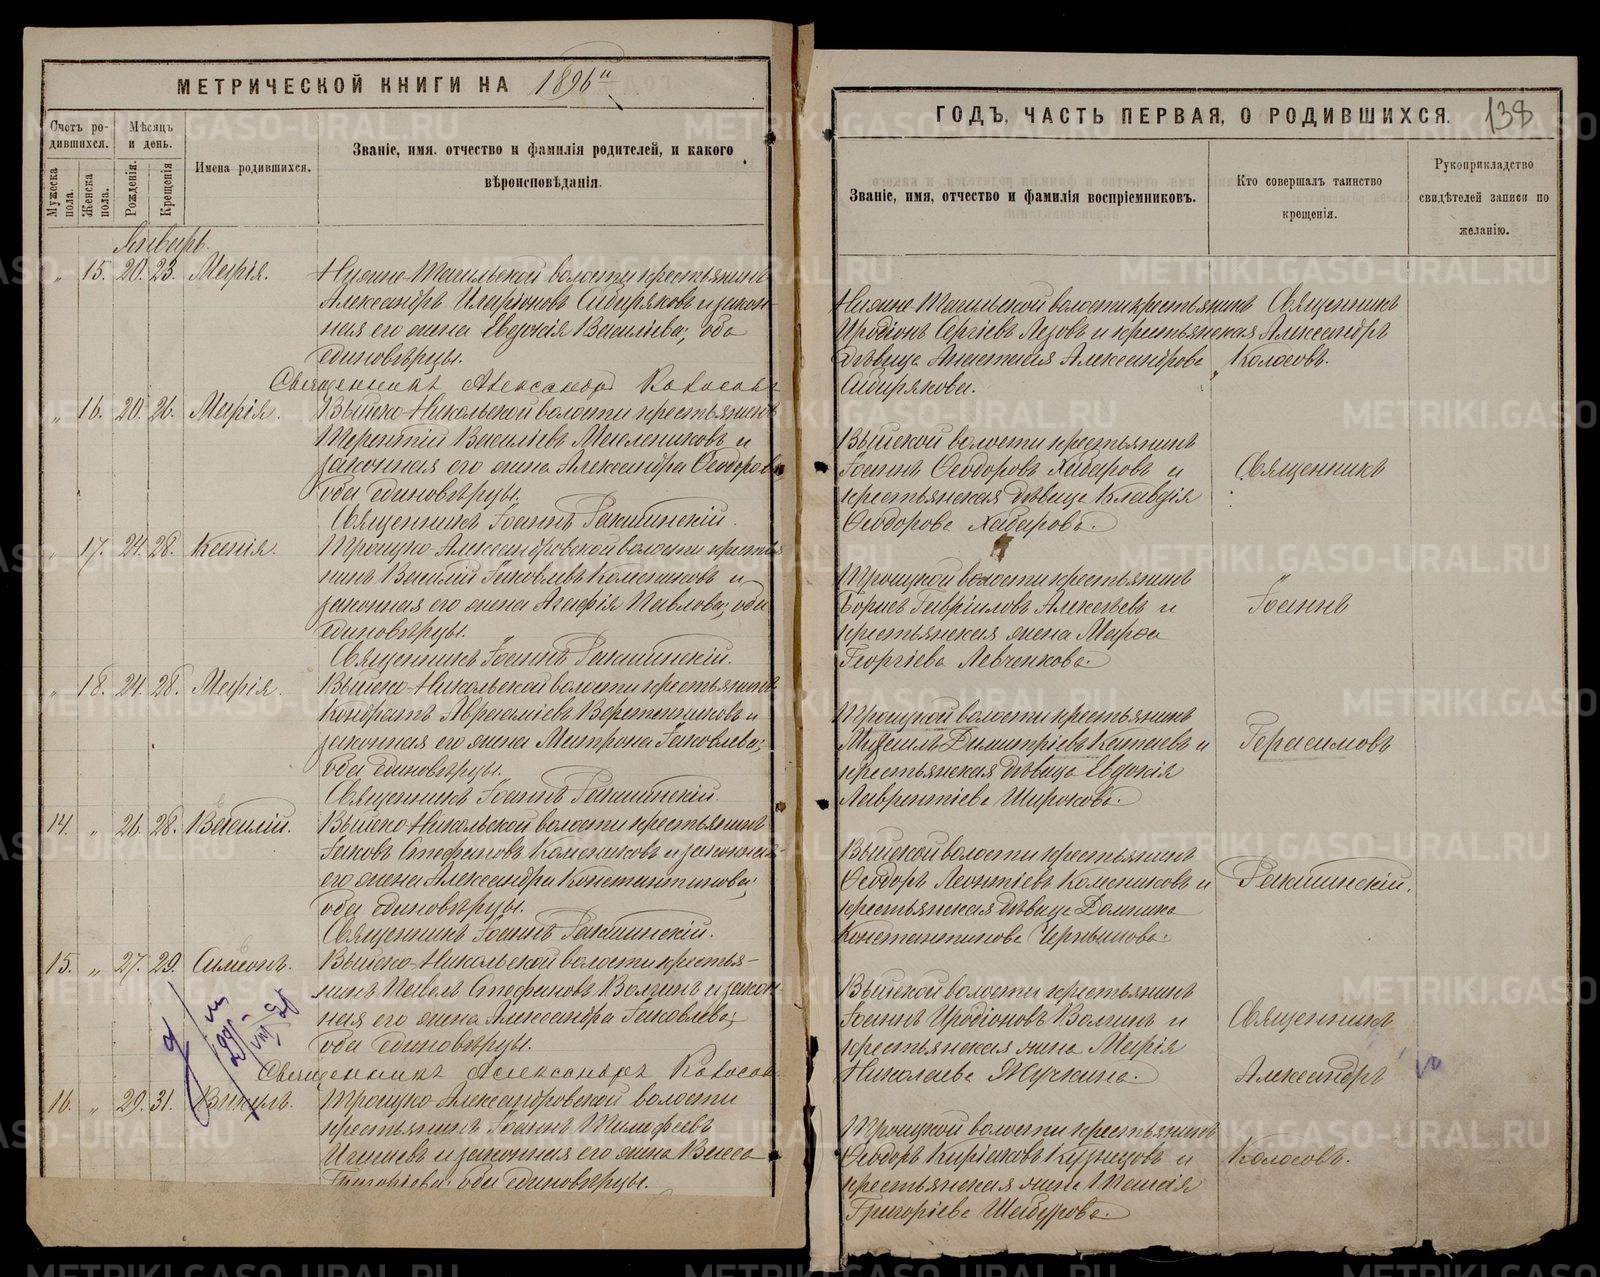 МЕТРИЧЕСКОЙ КНИГИ НА 1896й
Счетъ ро-
дившихся.
Мужеска
пола.
Женска
пола.
Мѣсяцъ
и день.
Рожденія.
Крещенія
Имена родившихся.
Званіе, имя. отчество и фамилія родителей, и какого
вѣроисповѣданія.
Январь.
" 15. 20. 23. Марія.
Нижне-Тагильской волости крестьянинъ
Александръ Иларіоновъ Сибиряковъ и закон-
ная его жена Евдокія Васильева; оба
единовѣрцы.
Священникъ Александръ Колосовъ
" 16. 20. 26. Марія.
Выйско-Никольской волости крестьянинъ
Терентій Василіевъ Маслениковъ и
законная его жена Александра Ѳеодорова
оба единовѣрцы.
Священникъ Іоаннъ
" 17. 24. 28. Ксенія.
Троицко-Александровской волости крестья
нинъ Василій Іаковлевъ и
законная его жена Агафія Павлова; оба
единовѣрцы.
Священникъ Іоаннъ
" 18. 24. 28. Марія.
Выйско-Никольской волости крестьянинъ
Кондратъ Авраамiевъ Веретенниковъ и
законная его жена Матрона Іаковлева;
оба единовѣрцы.
Священникъ Іоаннъ
14. " 26. 28. Василій.
Выйско-Никольской волости крестьянинъ
Іаковъ Стефановъ и законная
его жена Александра Константинова;
оба единовѣрцы.
Священникъ Іоаннъ
15. " 27. 29. Симеонъ.
Выйско-Никольской волости крестья-
нинъ Павелъ Стефановъ Волгинъ и закон-
ная его жена Александра Іаковлева;
оба единовѣрцы.
Священникъ Александръ Колосовъ
16. " 29. 31. Викулъ.
Троицко-Александровской волости
крестьянинъ Іоаннъ Тимофеевъ
и законная его жена Васса
Григоріева; оба единовѣрцы.
ГОДЪ, ЧАСТЬ ПЕРВАЯ, О РОДИВШИХСЯ. 138
Званіе, имя, отчество и фамилія воспріемниковъ.
Кто совершалъ таинство
крещенія.
Рукоприкладство
свидѣтелей записи по
желанію.
Нижне-Тагильской волости крестьянинъ Священникъ
Иродіонъ Сергіевъ и крестьянская Александръ
дѣвица Анастасія Александрова Колосовъ.
Сибирякова.
Выйской волости крестьянинъ
Іоаннъ Ѳеодоровъ Хабаровъ и Священникъ
крестьянская дѣвица Клавдія
Ѳеодорова Хабарова.
Троицкой волости крестьянинъ
Борисъ Гавріиловъ Алексѣевъ и Іоаннъ
крестьянская жена Марѳа
Георгіева Левченкова.
Троицкой волости крестьянинъ
Михаилъ Димитріевъ Катаевъ и Герасимовъ
крестьянская дѣвица Евдокія
Лаврентіева Широкова.
Выйской волости крестьянинъ
Ѳеодоръ Леонтіевъ и
крестьянская дѣвица Домника
Константинова Чернышова.
Выйской волости крестьянинъ
Іоаннъ Иродіоновъ Волгинъ и Священникъ
крестьянская жена Марія
Николаева Жучкина. Александръ
Троицкой волости крестьянинъ
Ѳеодоръ Киріаковъ Кузнецовъ и Колосовъ.
крестьянская жена Таисія
Григоріева Шабурова.
METRIKI.GASO-URAL.RU